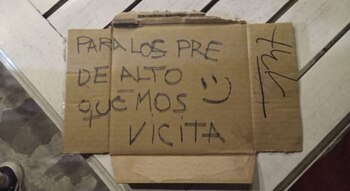 PARA LOS PRE
DE ALTO
QUEMOS
VICITA